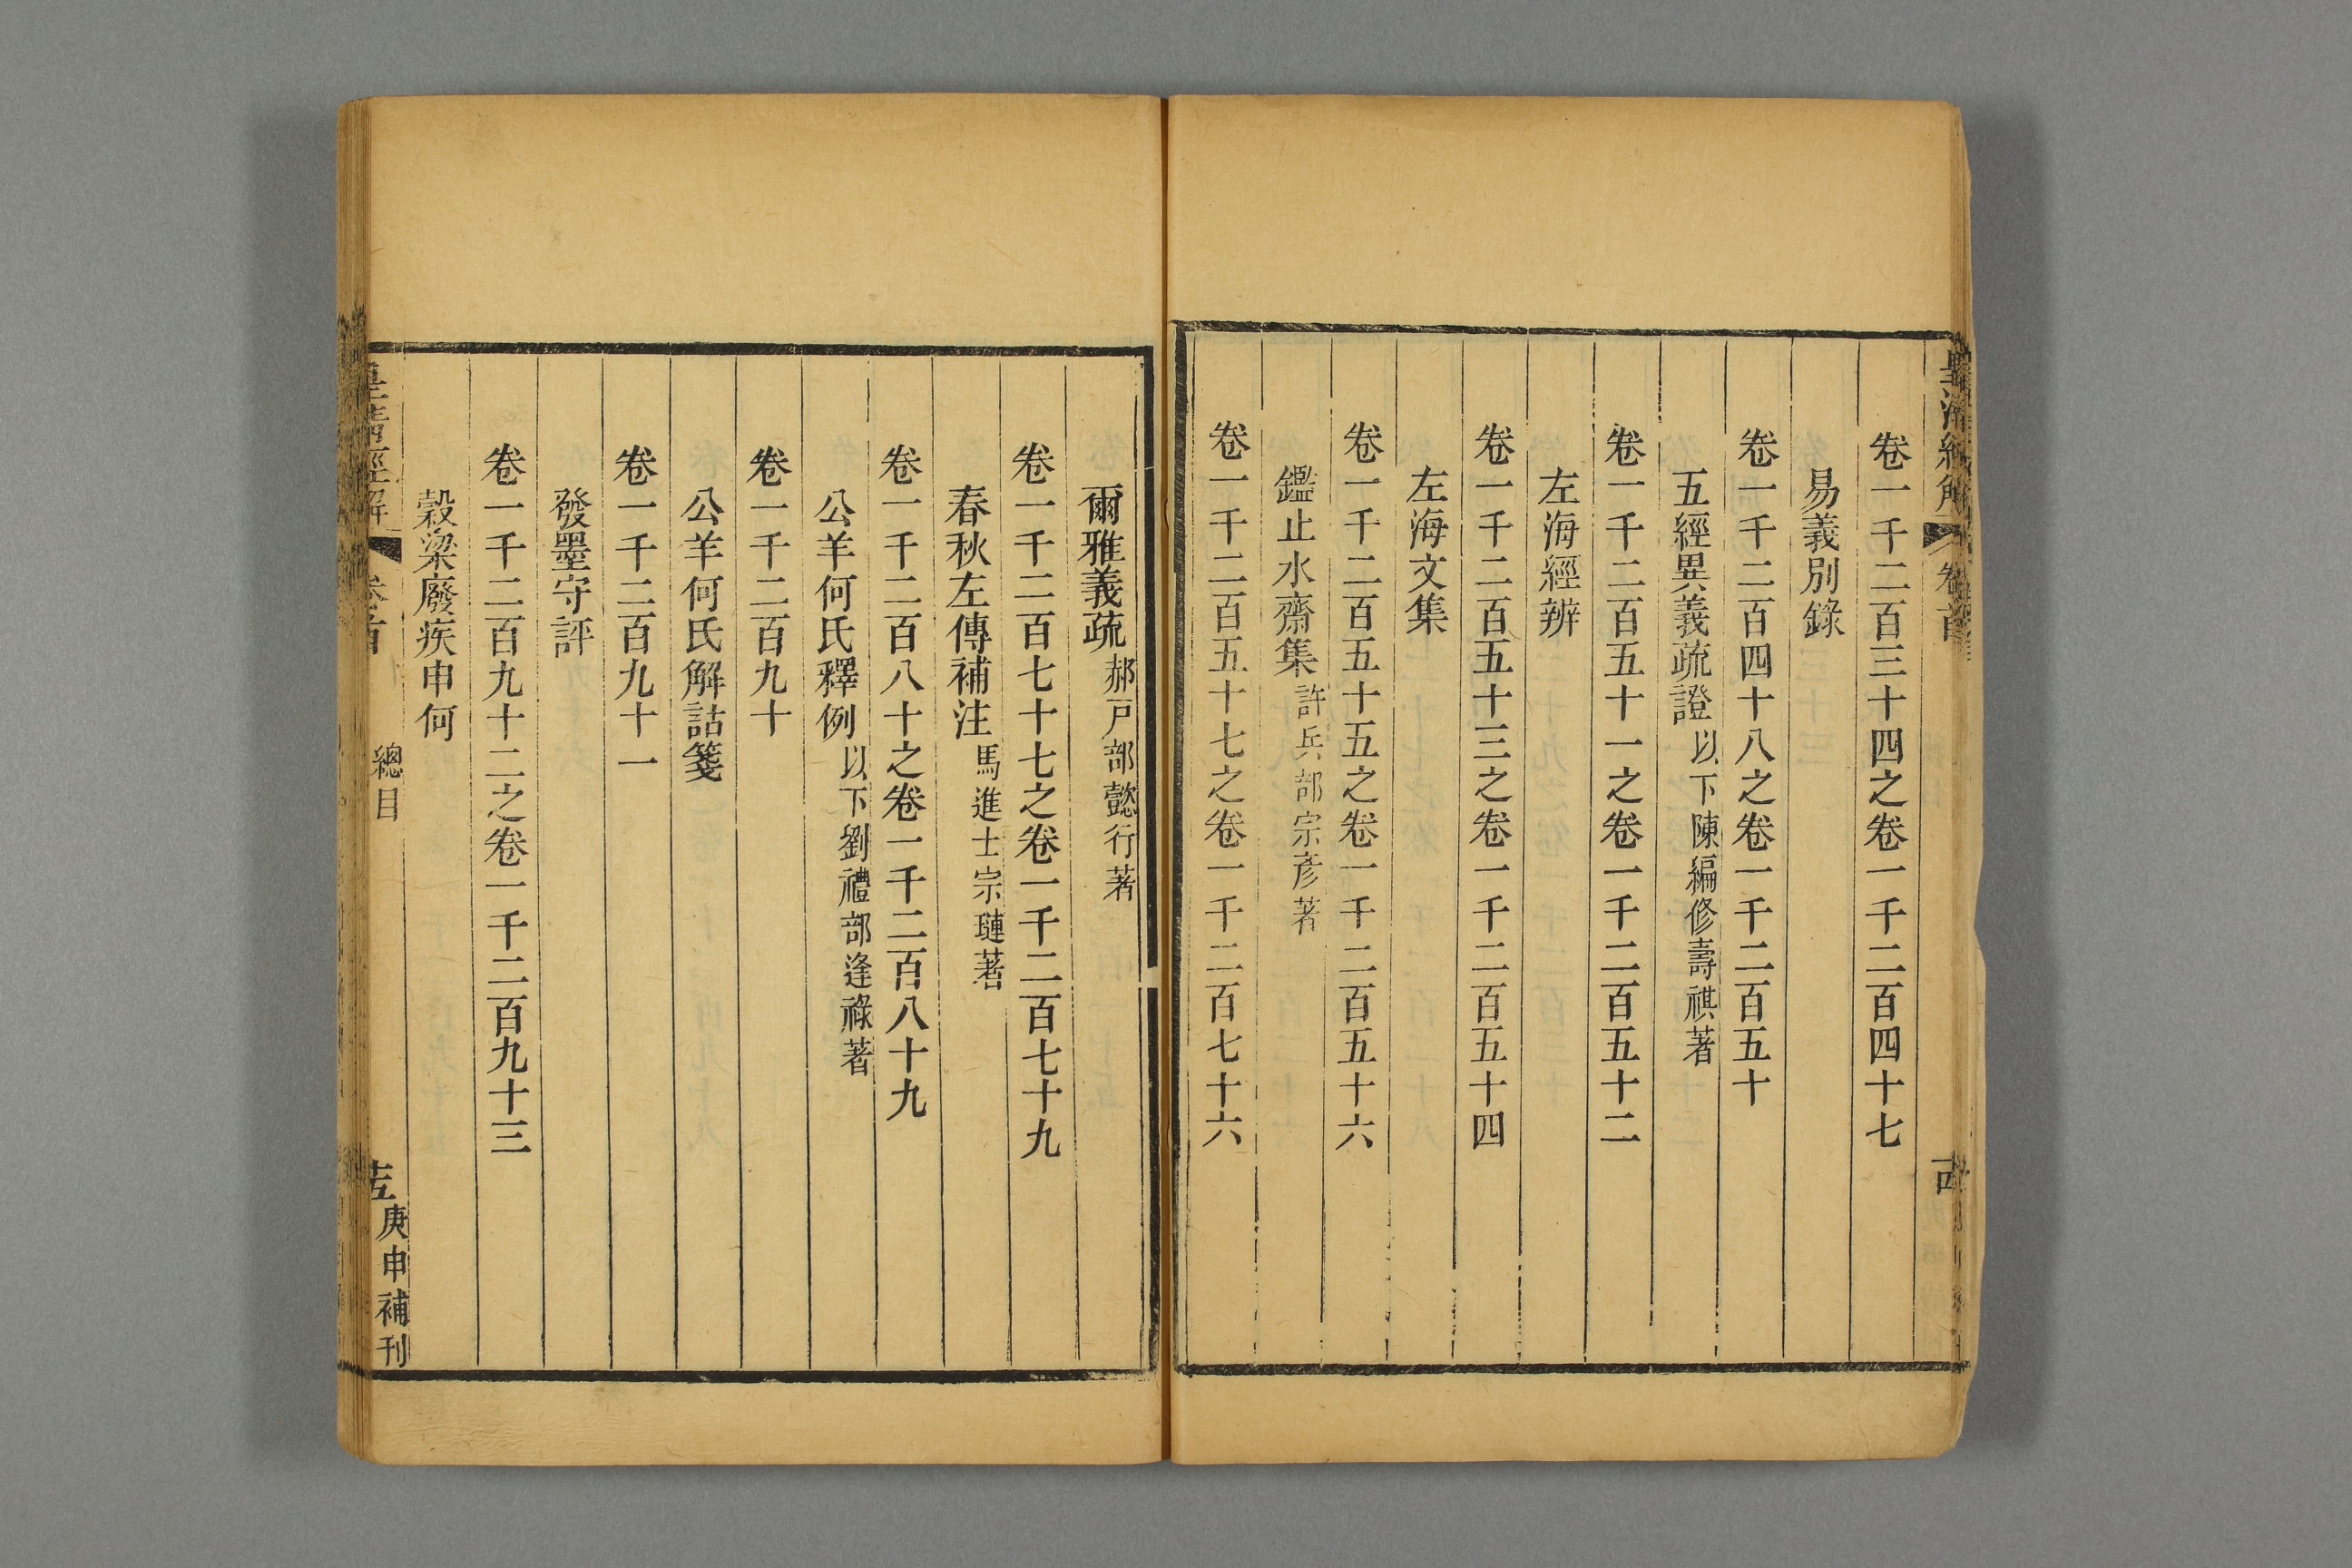 皇清經解 卷首 古
卷一千二百三十四之卷一千二百四十七
易義別錄
卷一千二百四十八之卷一千二百五十
五經異義疏證 以下陳編修壽祺著
卷一千二百五十一之卷一千二百五十二
左海經辨
卷一千二百五十三之卷一千二百五十四
左海文集
卷一千二百五十五之卷一千二百五十六
鑑止水齋集 許兵部宗彥著
卷一千二百五十七之卷一千二百七十六
爾雅義疏 郝戸部懿行著
卷一千二百七十七之卷一千二百七十九
春秋左傳補注 馬進士宗璉著
卷一千二百八十之卷一千二百八十九
公羊何氏釋例 以下劉禮部逢祿著
卷一千二百九十
公羊何氏解詁箋
卷一千二百九十一
發墨守評
卷一千二百九十二之卷一千二百九十三
穀梁廢疾申何
皇清經解 卷首 總目 庚申補刊